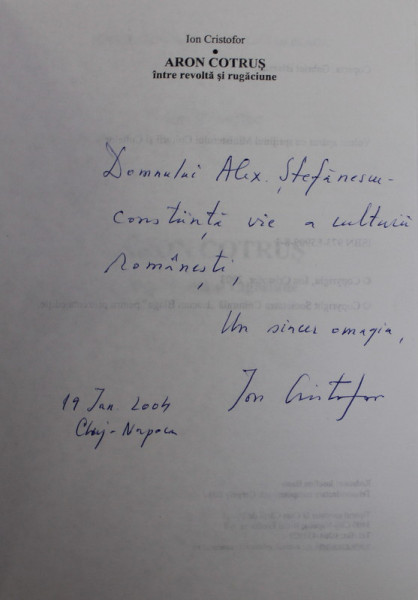 Ion Cristofor
•
ARON COTRUȘ
între revoltă și rugăciune
Domnului Alex. Ștefănescu-
conștiință vie a culturii
românești,
Un sincer omagiu,
Ion Cristofor
19 Ian. 2004
Cluj-Napoca